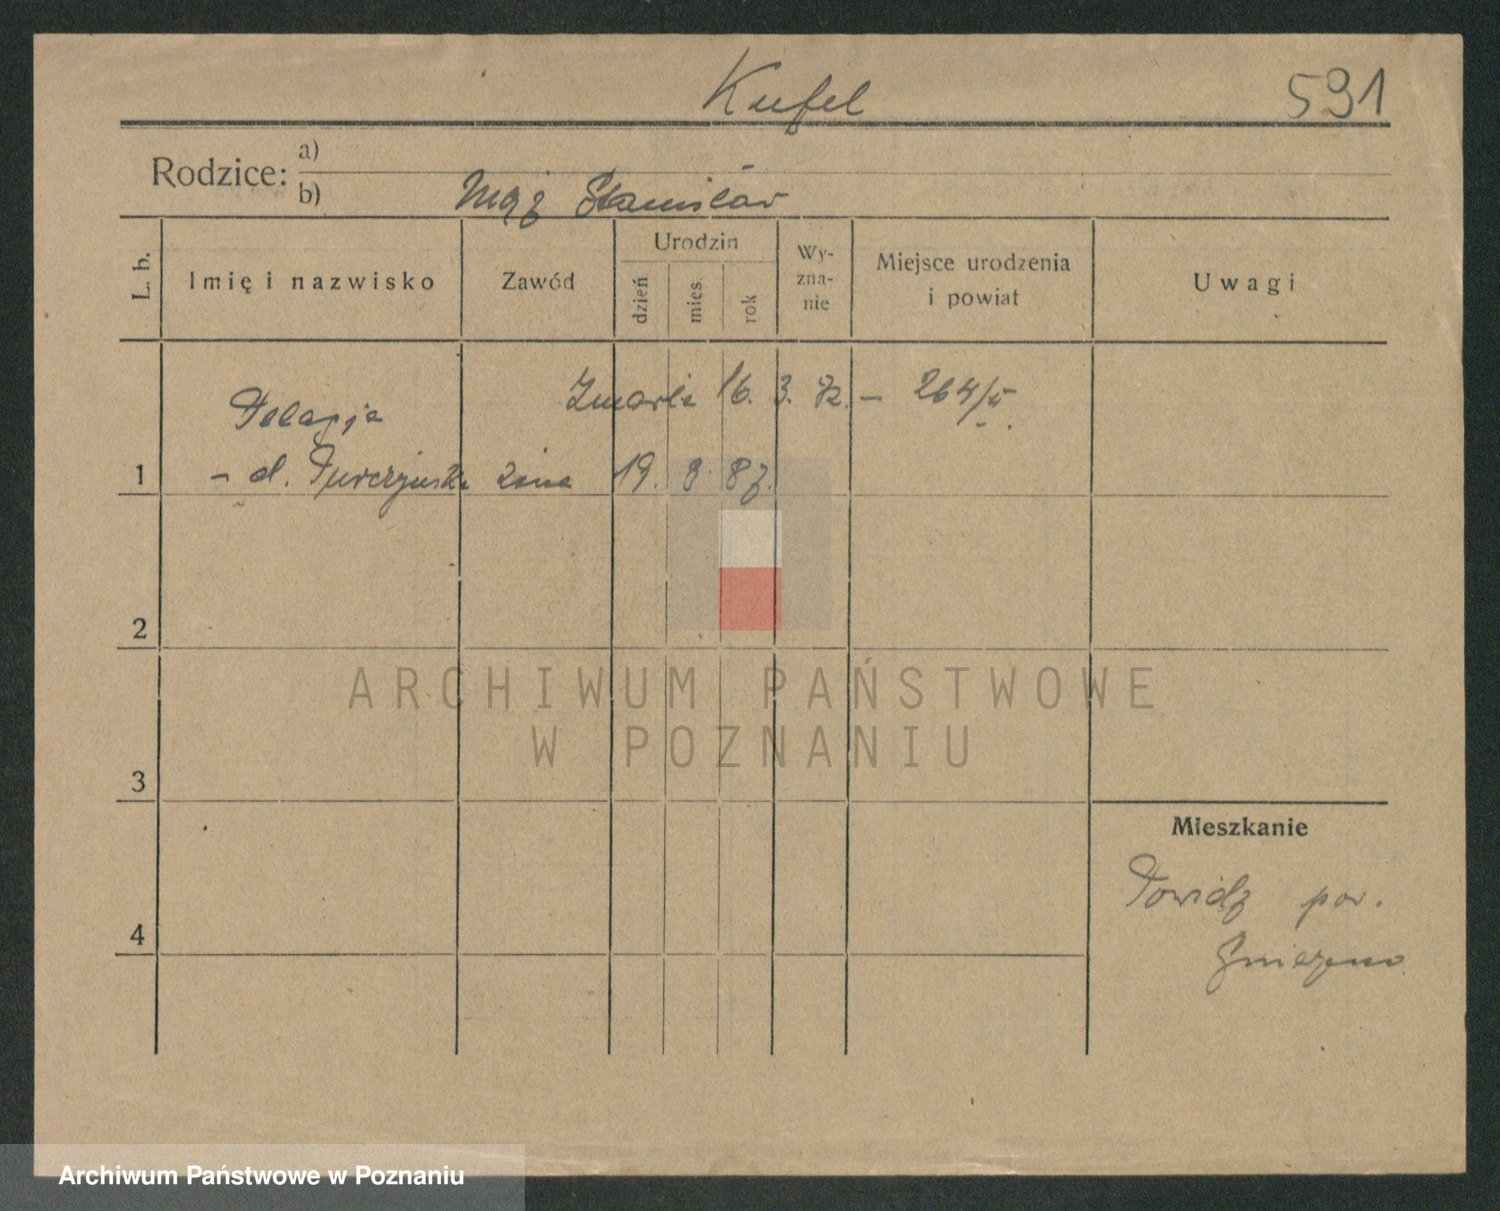 Kufel 591
Rodzice: a)
b) Mąż Stanisław
L. b. Imię i nazwisko Zawód Urodzin dzień mies. rok Wy-zna-nie Miejsce urodzenia i powiat Uwagi
Pelagja Zmarła 16. 3. 72. – 264/5
1 – d. Turczyńska żona 19. 9. 87.
2
ARCHIWUM PAŃSTWOWE
W POZNANIU
3
Mieszkanie
Powidz pow.
4
Gniezno
Archiwum Państwowe w Poznaniu